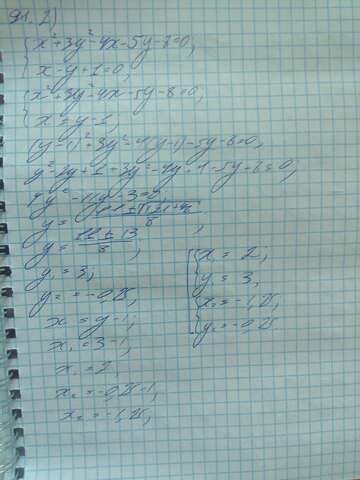 91. 2)
{ x² + 3y² - 4x - 5y - 8 = 0,
x - y + 1 = 0;
{ x² + 3y² - 4x - 5y - 8 = 0,
x = y - 1;
(y-1)² + 3y² - 4(y-1) - 5y - 8 = 0;
y² - 2y + 1 + 3y² - 4y + 4 - 5y - 8 = 0;
4y² - 11y - 3 = 0;
y = 11 ± √121 + 48 / 8 ;
y = 11 ± 13 / 8 ;
y₁ = 3;
y₂ = -0,25;
x = y - 1;
x₁ = 3 - 1;
x₁ = 2;
x₂ = -0,25 - 1;
x₂ = -1,25;
[ { x₁ = 2,
y₁ = 3;
{ x₂ = -1,25,
y₂ = -0,25.